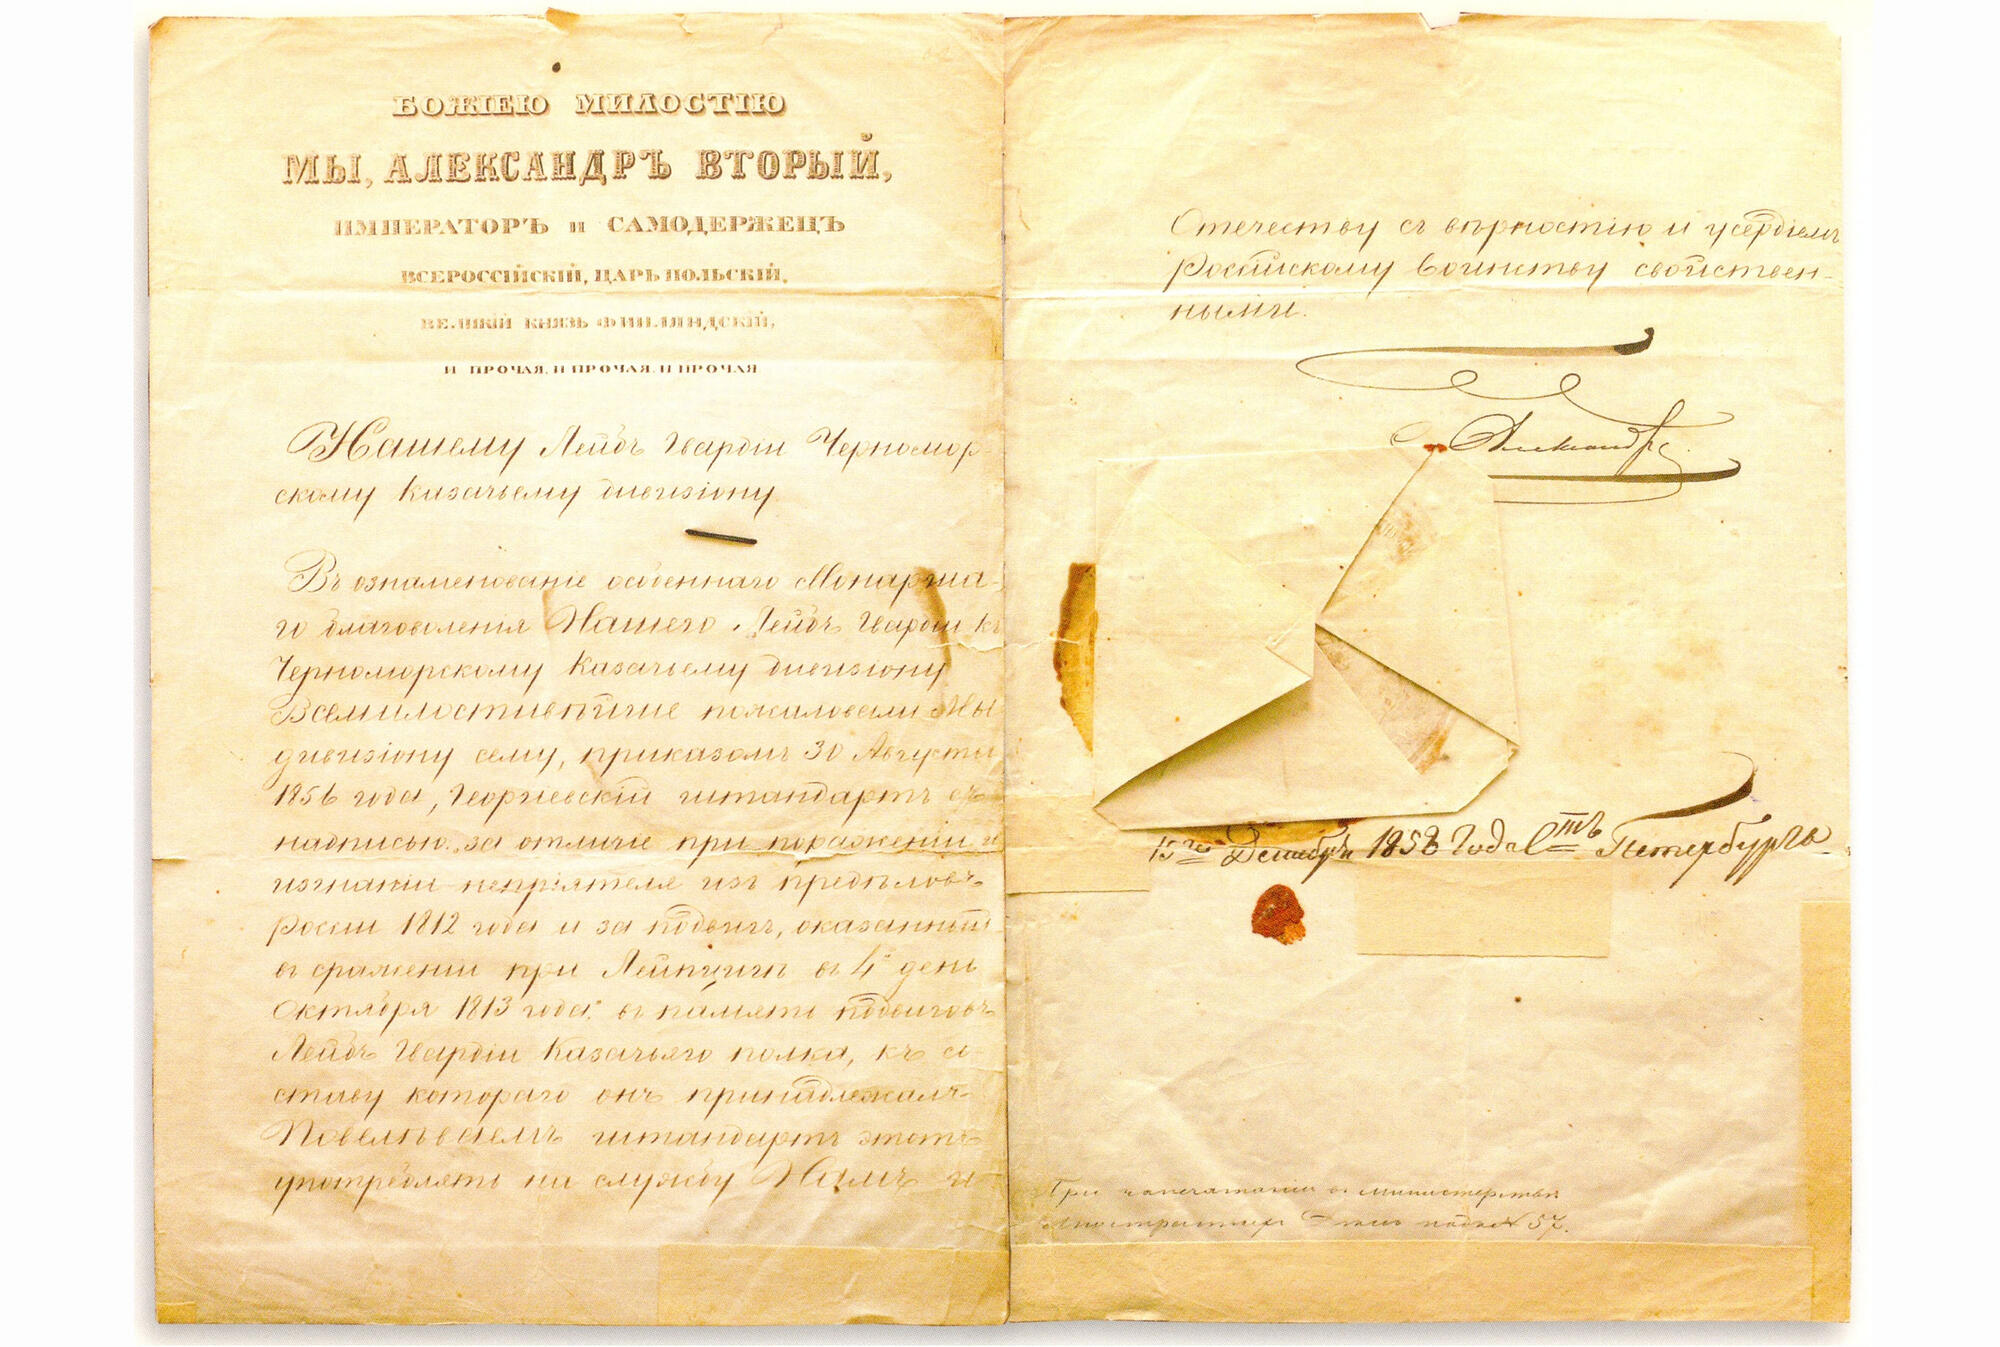 БОЖІЕЮ МИЛОСТІЮ
МЫ, АЛЕКСАНДРЪ ВТОРЫЙ,
ИМПЕРАТОРЪ и САМОДЕРЖЕЦЪ
ВСЕРОССІЙСКІЙ, ЦАРЬ ПОЛЬСКІЙ,
ВЕЛИКІЙ КНЯЗЬ ФИНЛЯНДСКІЙ,
И ПРОЧАЯ, И ПРОЧАЯ, И ПРОЧАЯ
Нашему Лейбъ Гвардіи Черномор-
скому Казачьему дивизіону
Въ ознаменованіе особеннаго Монарша-
го благоволенія Нашего Лейбъ Гвардіи къ
Черноморскому Казачьему дивизіону
Всемилостивѣйше пожаловали Мы
дивизіону сему, приказомъ 30 Августа
1856 года, Георгіевскій штандартъ съ
надписью: за отличіе при пораженіи и
изгнаніи непріятеля изъ предѣловъ
Россіи 1812 года и за подвигъ, оказанный
въ сраженіи при Лейпцигѣ въ 4й день
Октября 1813 года: въ память подвиговъ
Лейбъ Гвардіи Казачьяго полка, къ со-
ставу котораго онъ принадлежалъ
Повелѣваемъ штандартъ этотъ
употреблять на службу Намъ и
Отечеству съ вѣрностію и усердіемъ
Россійскому Воинству свойствен-
ными.
Александръ
15го Декабря 1858 Года Стъ Петербургъ
При запечатаніи въ министерствѣ
Иностранныхъ Дѣлъ подъ № 57.